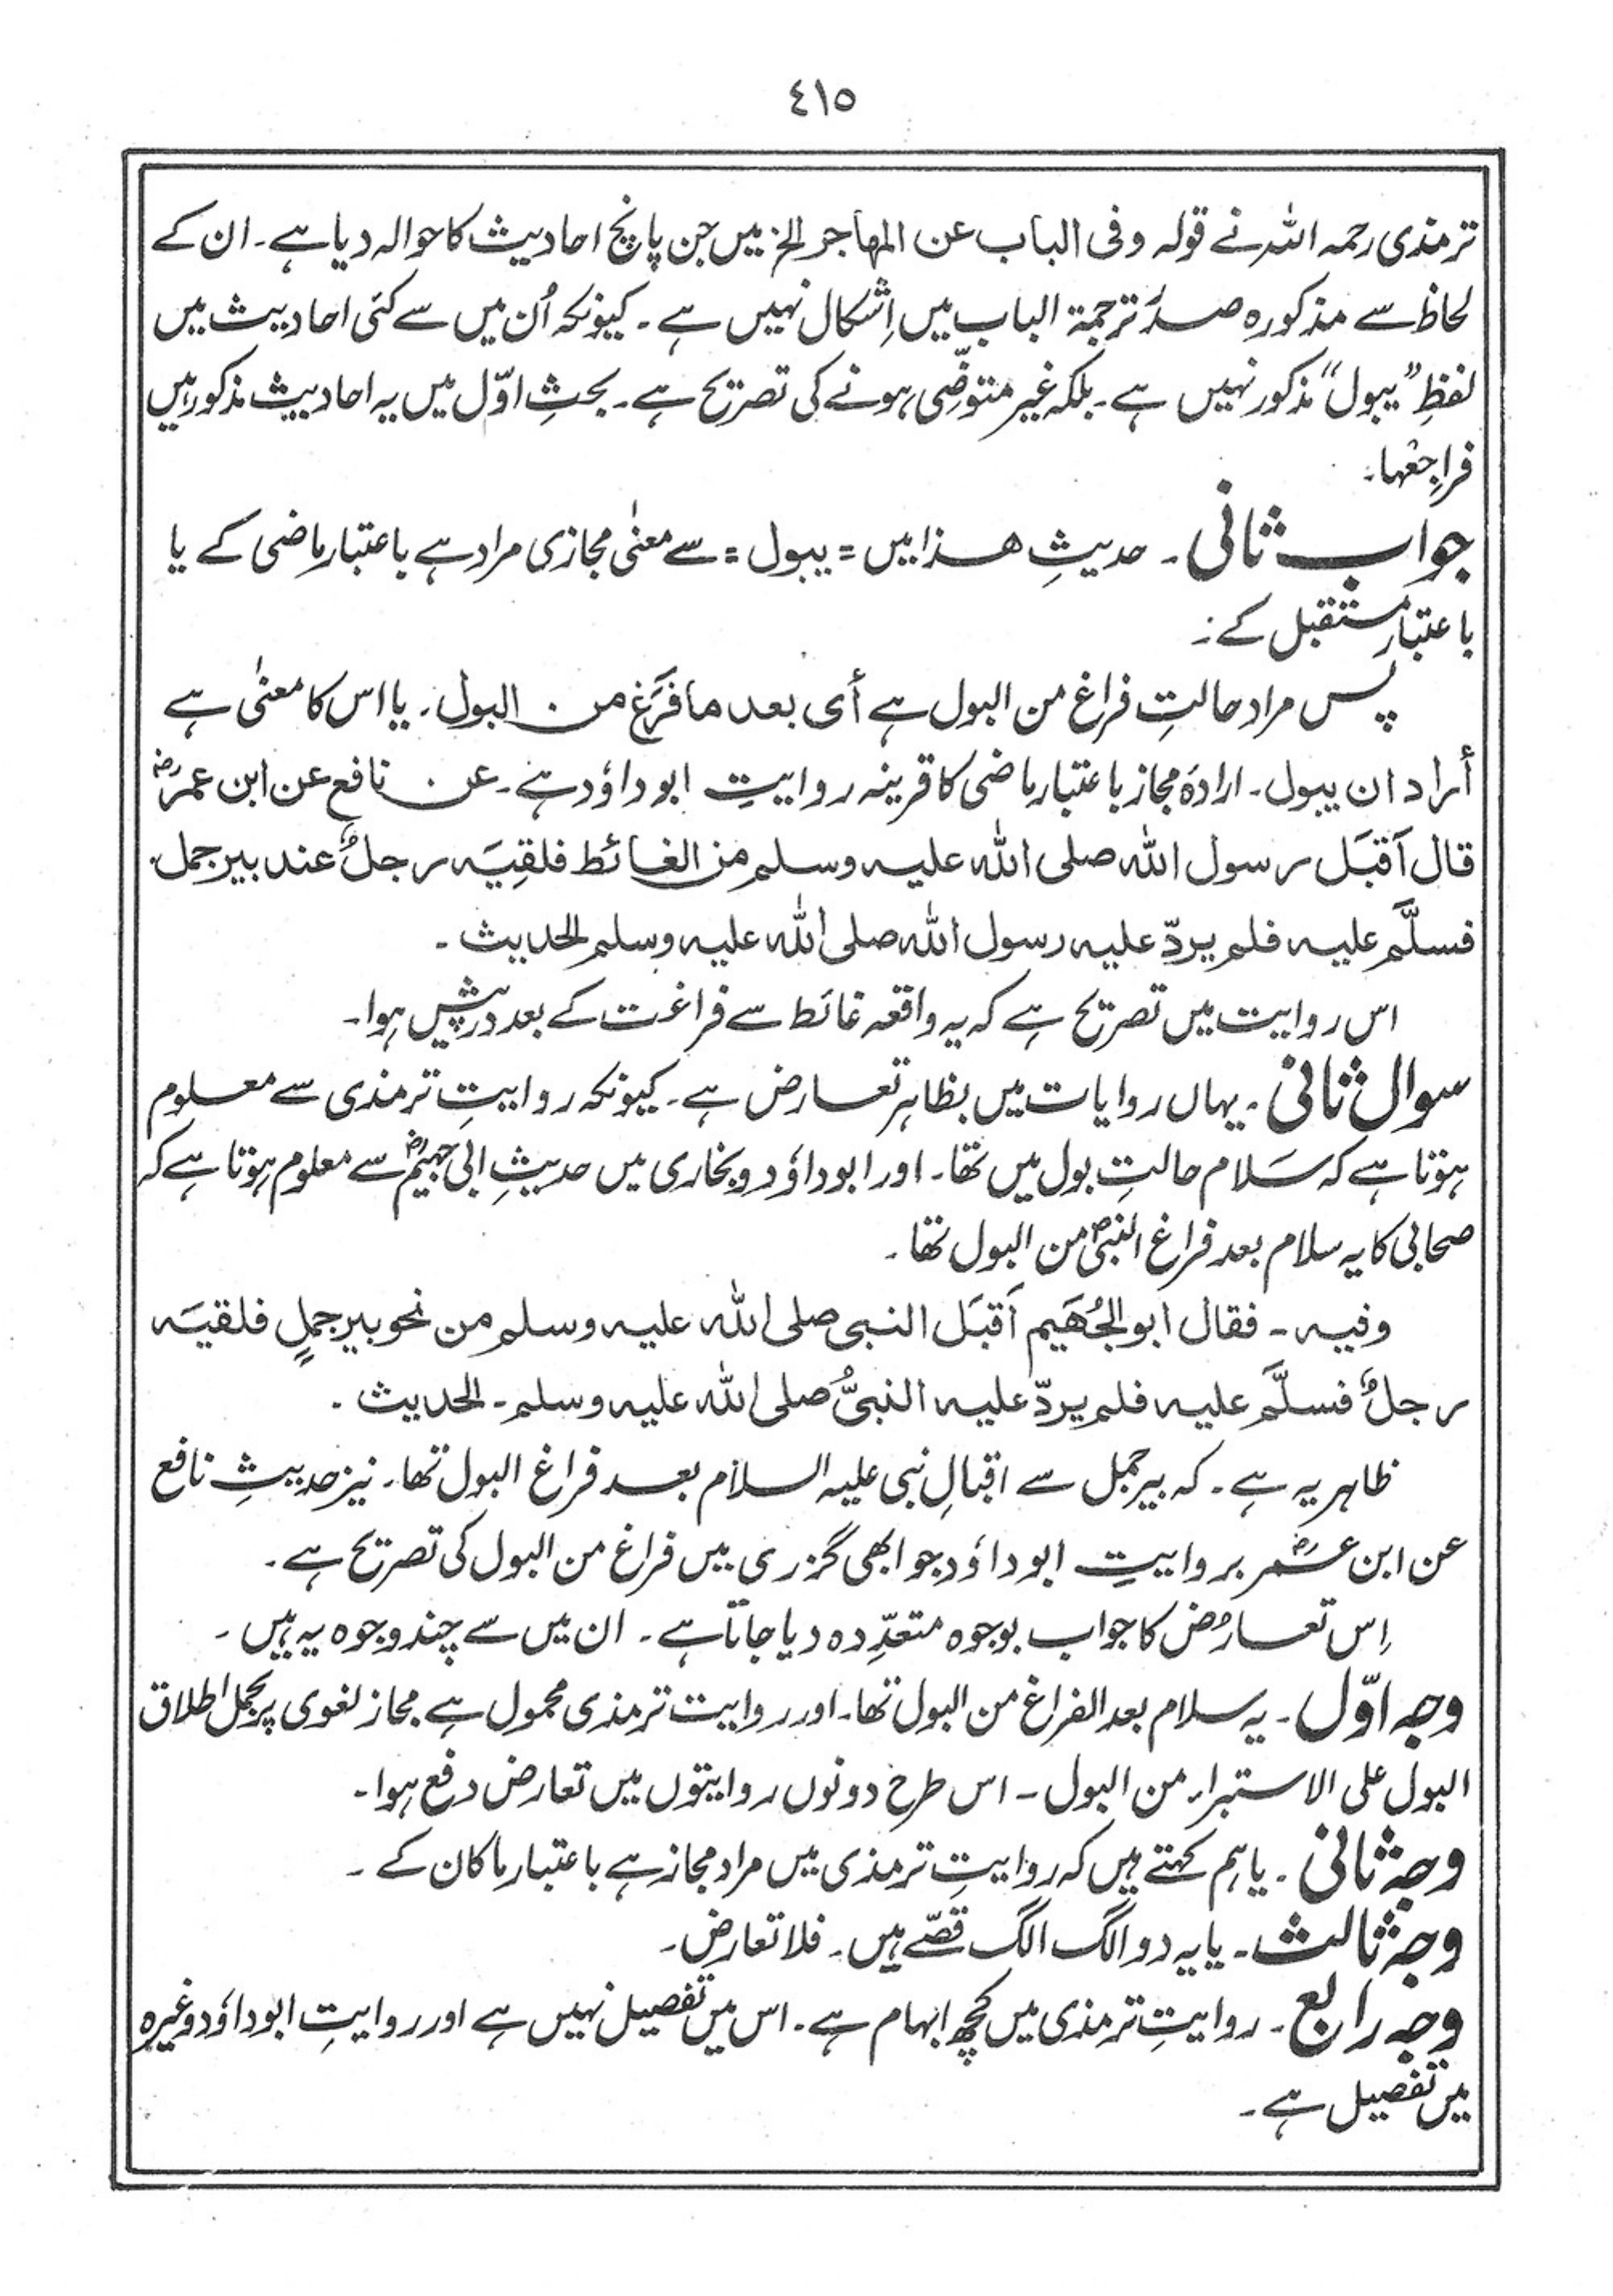 ٤١٥
ترمذی رحمہ اللہ نے قولہ وفی الباب عن المهاجر الخ میں جن پانچ احادیث کا حوالہ دیا ہے۔ ان کے
لحاظ سے مذکورہ صدر ترجمۃ الباب میں اِشکال نہیں ہے۔ کیونکہ اُن میں سے کئی احادیث میں
لفظِ ”یبول“ مذکور نہیں ہے۔ بلکہ غیر متوضّی ہونے کی تصریح ہے۔ بحثِ اوّل میں یہ احادیث مذکور ہیں
فراجِعْہا۔
جواب ثانی ۔ حدیثِ ھذا میں = یبول = سے معنیٰ مجازی مراد ہے باعتبار ماضی کے یا
باعتبار مستقبل کے :
پس مراد حالتِ فراغ من البول ہے أی بعد ما فَرَغ من البول۔ یا اس کا معنیٰ ہے
أراد ان یبول۔ ارادۂ مجاز باعتبار ماضی کا قرینہ روایتِ ابوداؤد ہے۔ عن نافع عن ابن عمرؓ
قال اَقبَل رسول اللہ صلی اللہ علیہ وسلم من الغائط فلقِیَہ رجلٌ عند بیر جمل
فسلَّم علیہ فلم یردّ علیہ رسول اللہ صلی اللہ علیہ وسلم الحدیث ۔
اس روایت میں تصریح ہے کہ یہ واقعہ غائط سے فراغت کے بعد درپیش ہوا۔
سوال ثانی ۔ یہاں روایات میں بظاہر تعارض ہے۔ کیونکہ روایتِ ترمذی سے معلوم
ہوتا ہے کہ سَلام حالتِ بول میں تھا۔ اور ابوداؤد و بخاری میں حدیثِ ابی جہیمؓ سے معلوم ہوتا ہے کہ
صحابی کا یہ سلام بعد فراغ النبیؐ من البول تھا ۔
وفیہ ۔ فقال ابوالجُهَیم اَقبَل النبی صلی اللہ علیہ وسلم من نحو بیر جملٍ فلقیَہ
رجلٌ فسلَّم علیہ فلم یردّ علیہ النبیُّ صلی اللہ علیہ وسلم ۔ الحدیث ۔
ظاہر یہ ہے ۔ کہ بیر جمل سے اقبالِ نبی علیہ السلام بعد فراغ البول تھا۔ نیز حدیثِ نافع
عن ابن عمرؓ بروایتِ ابوداؤد جو ابھی گزری میں فراغ من البول کی تصریح ہے ۔
اِس تعارُض کا جواب بوجوہ متعدِّدہ دیا جاتا ہے ۔ ان میں سے چند وجوہ یہ ہیں ۔
وجہ اوّل ۔ یہ سلام بعد الفراغ من البول تھا۔ اور روایت ترمذی محمول ہے مجاز لغوی پر بحمل اطلاق
البول علی الاستبراء من البول ۔ اس طرح دونوں روایتوں میں تعارض دفع ہوا ۔
وجہ ثانی ۔ یا ہم کہتے ہیں کہ روایتِ ترمذی میں مراد مجاز ہے باعتبار ما کان کے ۔
وجہ ثالث ۔ یا یہ دو الگ الگ قصّے ہیں ۔ فلا تعارض ۔
وجہ رابع ۔ روایتِ ترمذی میں کچھ ابہام ہے ۔ اس میں تفصیل نہیں ہے اور روایتِ ابوداؤد وغیرہ
میں تفصیل ہے ۔